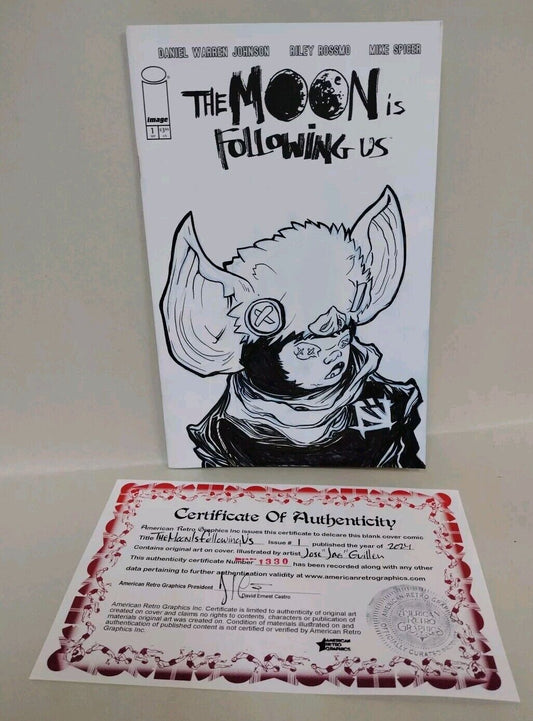 DANIEL WARREN JOHNSON RILEY ROSSMO MIKE SPICER
image
1
$3.99
THE MOON is
FOLLOWING US
Certificate Of Authenticity
American Retro Graphics Inc issues this certificate to delcare this blank cover comic
Title THE MOON IS Following Us Issue # 1 published the year of 2024
Contains original art on cover. illustrated by artist Jose "Jag" Guillen
This authenticity certificate Number 1330 has been recorded along with any other
data pertaining to further authentication validity at www.americanretrographics.com
American Retro Graphics President
David Ernest Castro
American Retro Graphics Inc. Certificate is limited to authenticity of original art
created on cover and claims no rights to contents, characters or publication of
materials original art was created on. Condition of materials illustrated on and
authenticity of published content is not certified or verified by American Retro
Graphics Inc.
AMERICAN
RETRO
GRAPHICS
AMERICAN
RETRO
GRAPHICS